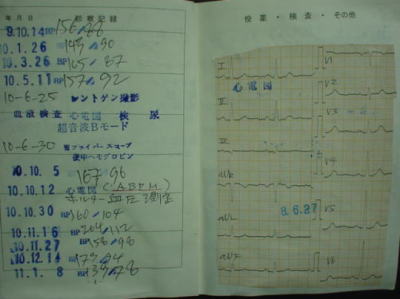 年 月 日
診察記録
9.10.14 BP 156/88
10.1.26 BP 143/90
10.3.26 BP 165/87
10.5.11 BP 157/92
10-6-25 レントゲン撮影
血液検査 心電図 検尿
超音波Bモード
10-6-30 胃ファイバースコープ
便中ヘモグロビン
10.10.5 167/96
10.10.12 心電図 (ABPM)
ホルター血圧測定
10.10.30 BP 160/104
10.11.16 BP 204/112
10.11.27 BP 158/98
10.12.14 BP 173/94
11.1.8 BP 139/78
投薬・検査・その他
I
V1
心電図
V2
II
V3
III
V4
aVR
aVL
8.6.27
V5
aVF
V6